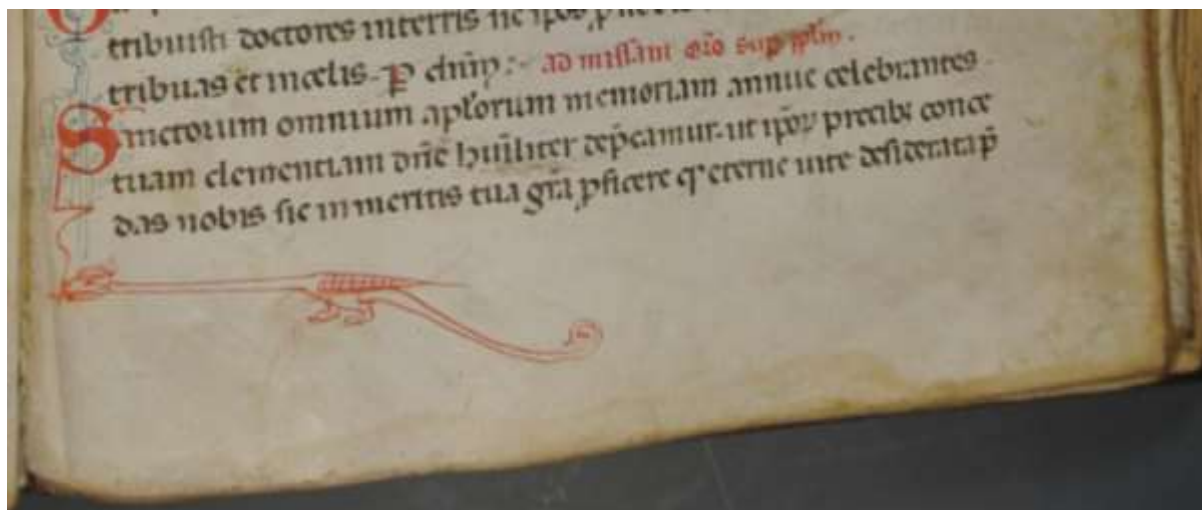 tribuisti doctores in terris sic ipoꝝ ꝑ
tribuas et in celis. P dñm: ad missam oro sup pplm.
Sanctorum omnium aplorum memoriam annue celebrantes
tuam clementiam dñe huiliter depcamur. ut ipoꝝ precibꝫ conce
das nobis sic in meritis tua gra ꝓficere qꝫ eterne uite desiderata p